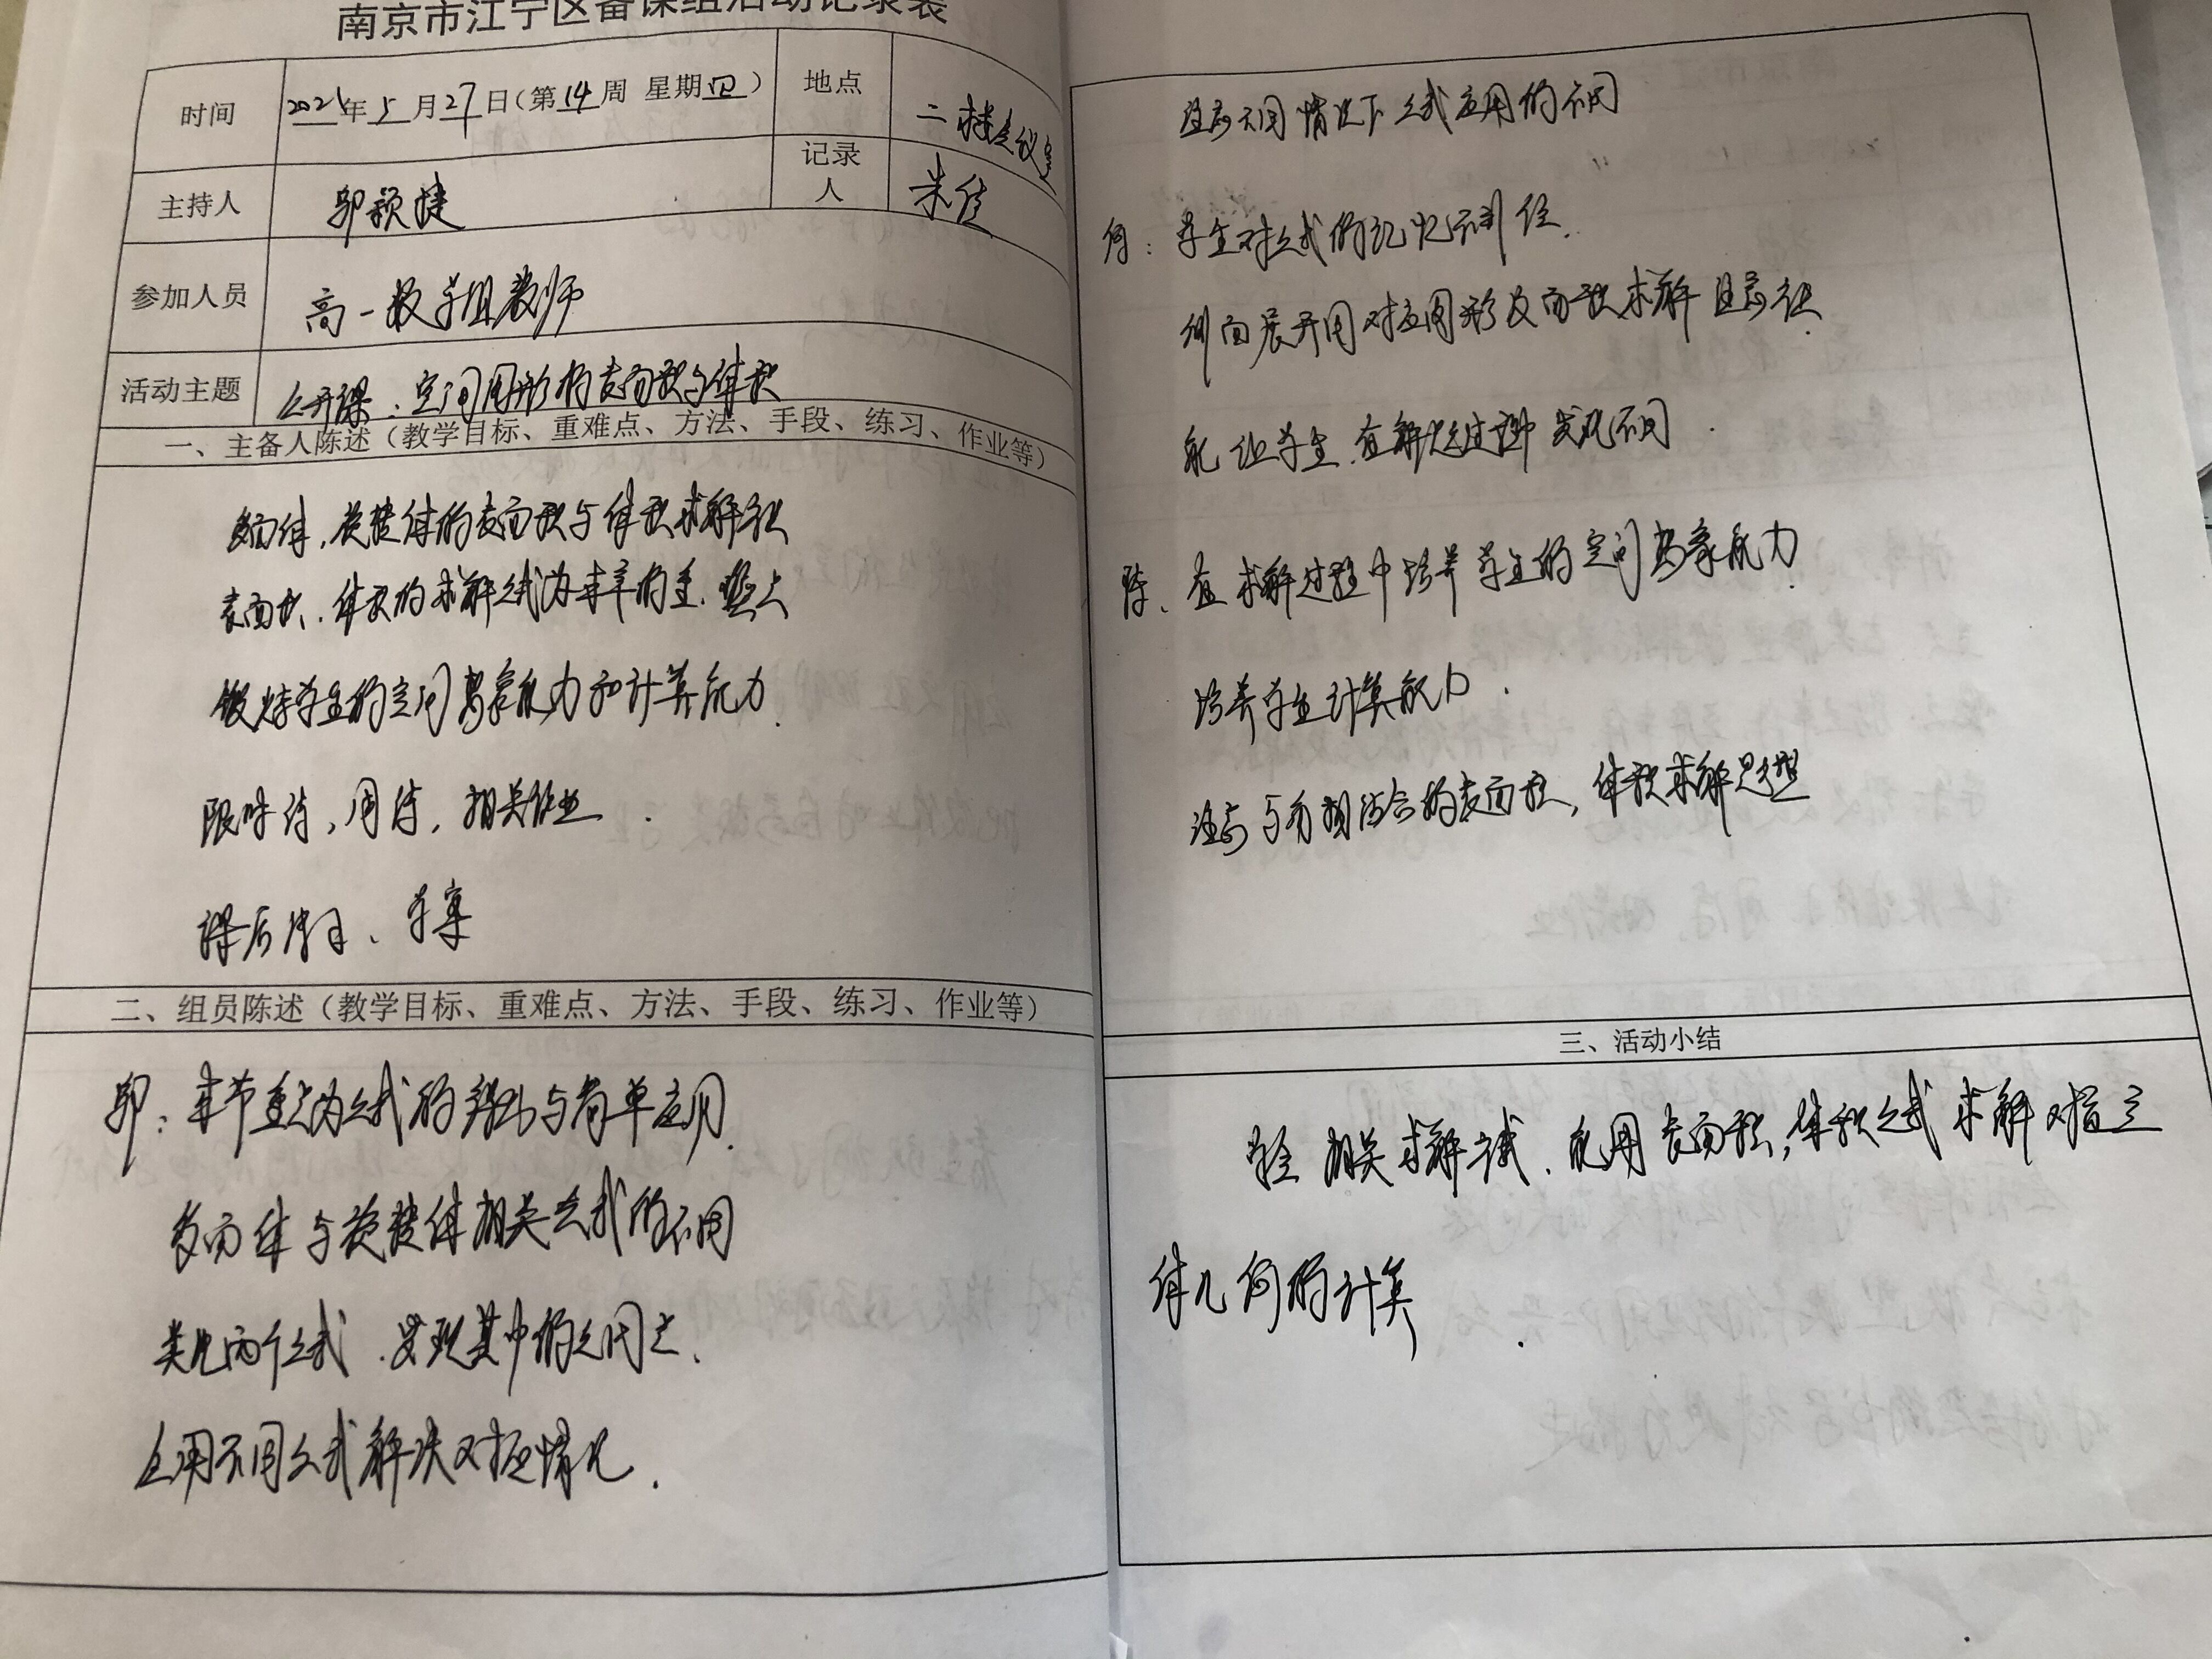 南京市江宁区备课组活动记录表
时间 2021年5月27日（第14周 星期四） 地点 二楼会议室
主持人 邬颖捷 记录人 朱佳
参加人员 高一数学组教师
活动主题 公开课：空间图形的表面积与体积
一、主备人陈述（教学目标、重难点、方法、手段、练习、作业等）
多面体、旋转体的表面积与体积求解
表面积、体积的求解公式为本节的重、难点
锻炼学生的空间想象能力和计算能力.
限时练，周练，相关作业.
课后练习、学案
二、组员陈述（教学目标、重难点、方法、手段、练习、作业等）
邬：本节重点为公式的与简单应用.
多面体与旋转体相关公式的不同
类比两个公式.发现其中的
用不同公式解决对应情况.
注意不同情况下公式应用的不同
何：学生对公式的记忆
侧面展开图对应图形及面积求解
能让学生在解题过程中发现不同.
陈、在求解过程中培养学生的空间想象能力.
培养学生计算能力.
注意与相结合的表面积，体积求解题型
三、活动小结
相关求解公式、能用表面积，体积公式求解对应立
体几何的计算.